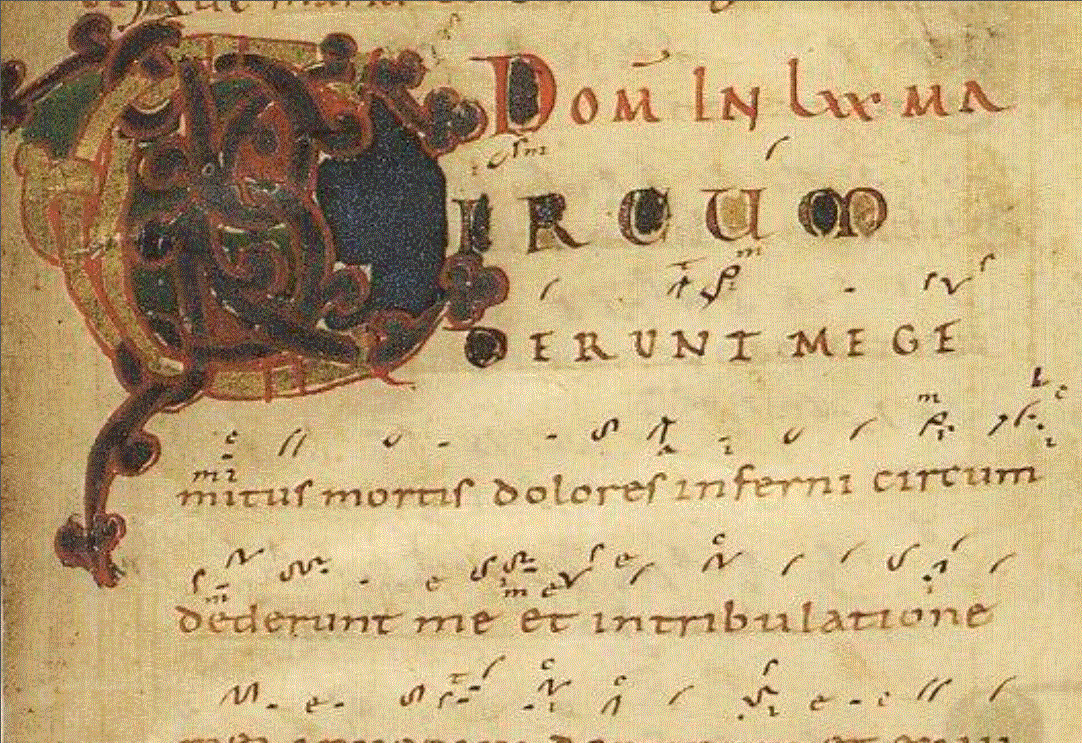 DOM IN LXX MA
CIRCUM
DERUNT ME GE
mituſ mortiſ doloreſ inferni circum
dederunt me et intribulatione